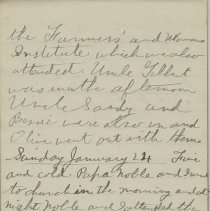 the Farmers' and Womens
Institute which we also
attended. Uncle Gilbert
was in the afternoon
Uncle Sandy and
Bessie were also in and
Olive went out with them
Sunday January 24 Fine
and cold Papa Noble and I went
to church in the morning and at
night Noble and I attended the